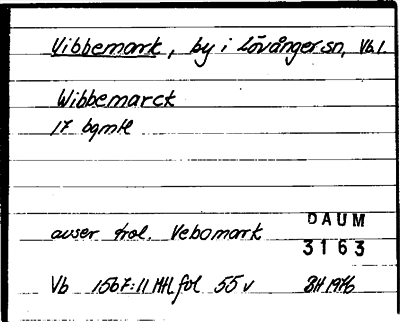 Vibbemark, by i Lövånger sn, Vb l.
Wibbemarck
17 bgmtl
DAUM
avser trol. Vebomark
3163
Vb 1567:11 Mtl fol 55v BH 1976